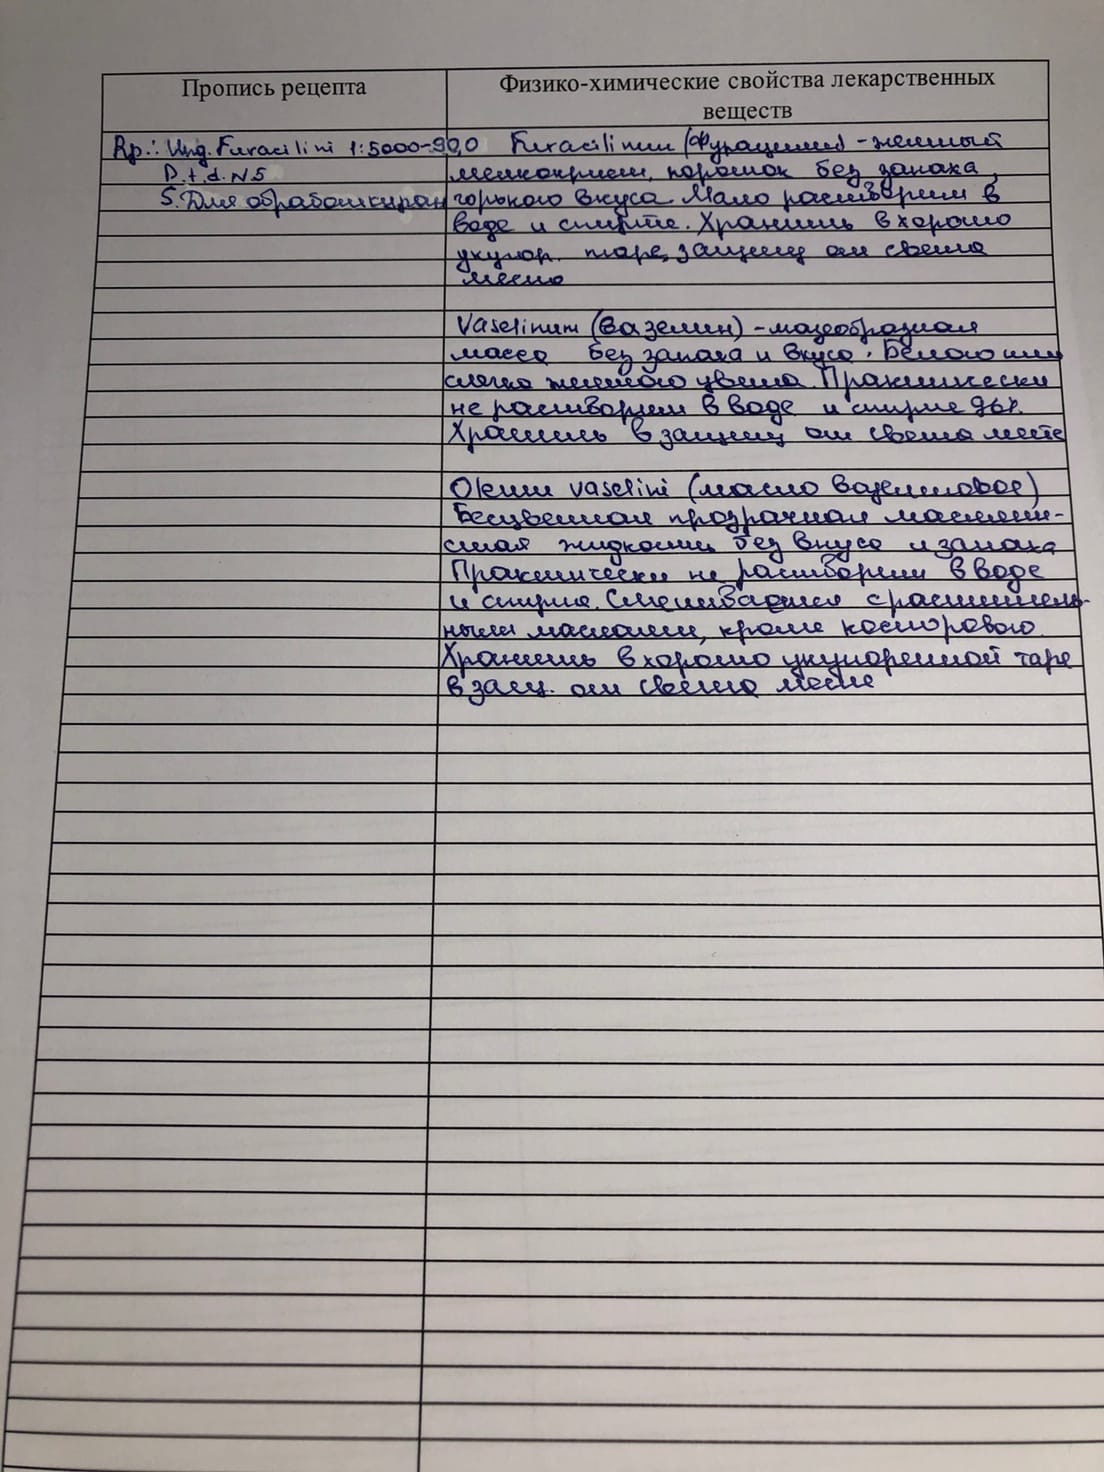 Пропись рецепта
Физико-химические свойства лекарственных
веществ
Rp.: Ung. Furacilini 1:5000-90,0
D.t.d. N5
S. Для обработки ран
Furacilinum (Фурацилин) - желтый
мелкокристл. порошок без запаха,
горького вкуса. Мало растворим в
воде и спирте. Хранить в хорошо
укупор. таре, защищ от света
место
Vaselinum (вазелин) - мазеобразная
масса без запаха и вкуса. Белого или
слегка желтого цвета. Практически
не растворим в воде и спирте 96%.
Хранить в защищ от света месте
Oleum vaselini (масло вазелиновое)
Бесцветная прозрачная маслянис-
тая жидкость без вкуса и запаха
Практически не растворим в воде
и спирте. Смешивается с раститель-
ными маслами, кроме касторового.
Хранить в хорошо укупоренной таре
в защ. от света месте